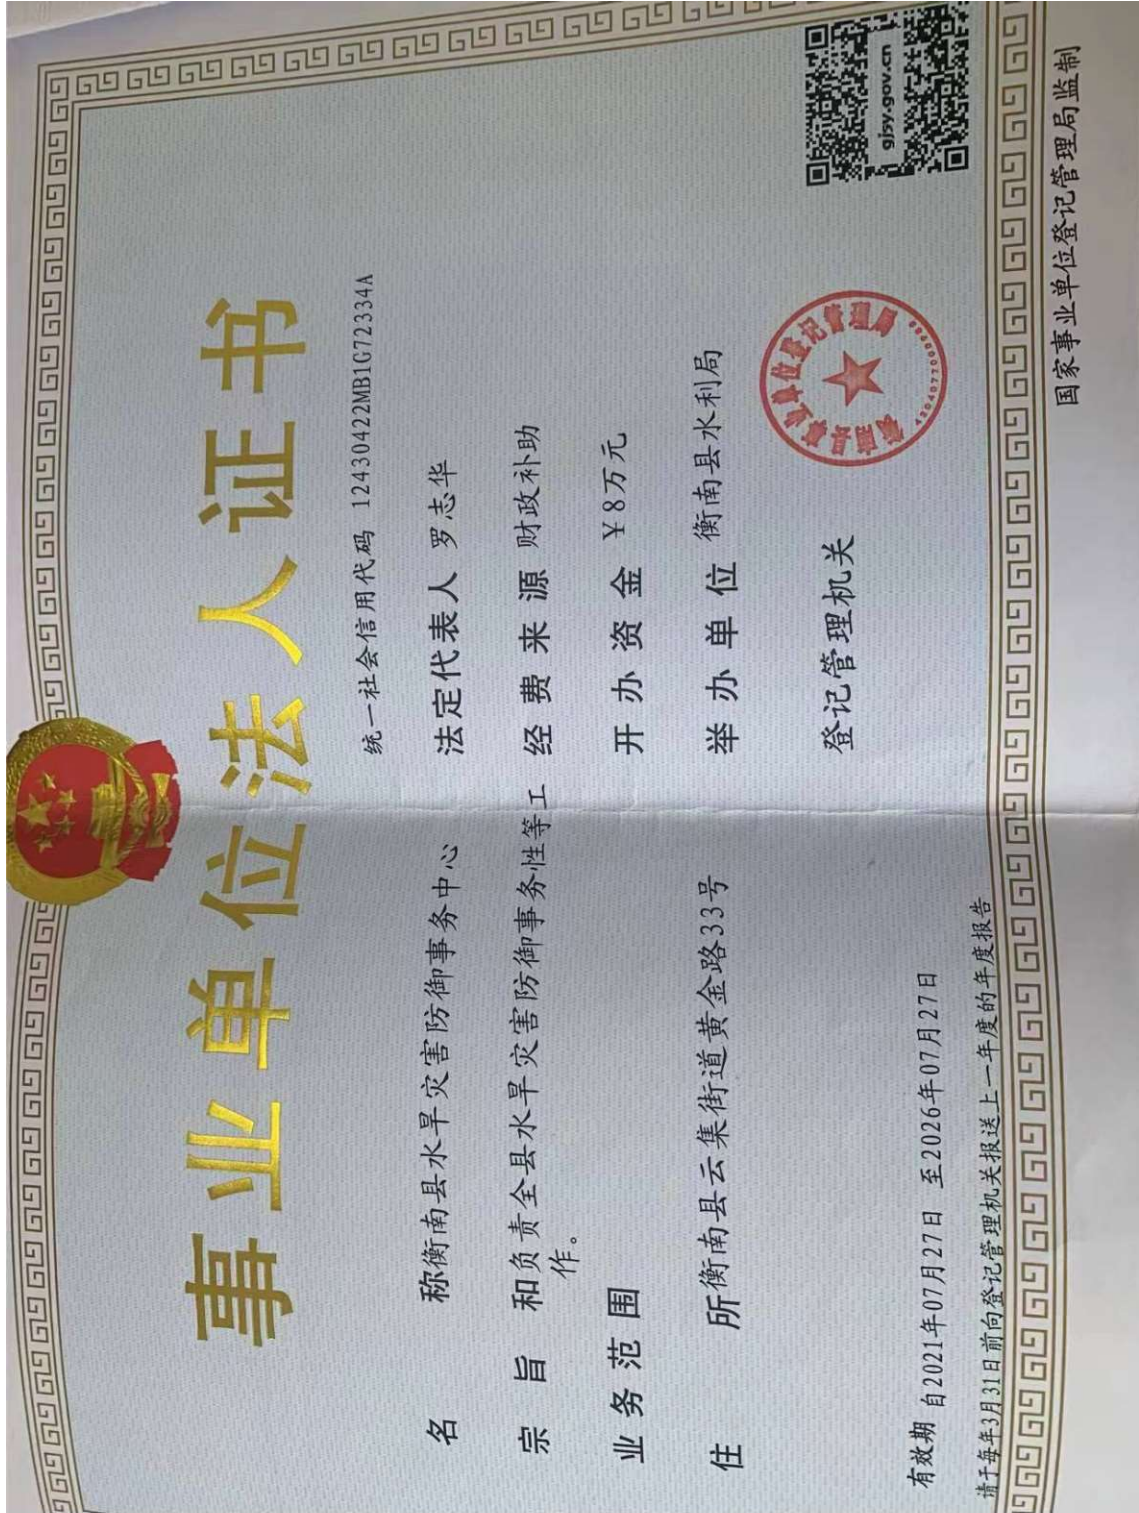 事业单位法人证书
统一社会信用代码 12430422MB1G72334A
名称 衡南县水旱灾害防御事务中心
宗旨和业务范围 负责全县水旱灾害防御事务性等工
作。
住所 衡南县云集街道黄金路33号
法定代表人 罗志华
经费来源 财政补助
开办资金 ￥8万元
举办单位 衡南县水利局
登记管理机关
衡南县事业单位登记管理局
gjsy.gov.cn
有效期 自2021年07月27日 至2026年07月27日
请于每年3月31日前向登记管理机关报送上一年度的年度报告
国家事业单位登记管理局监制